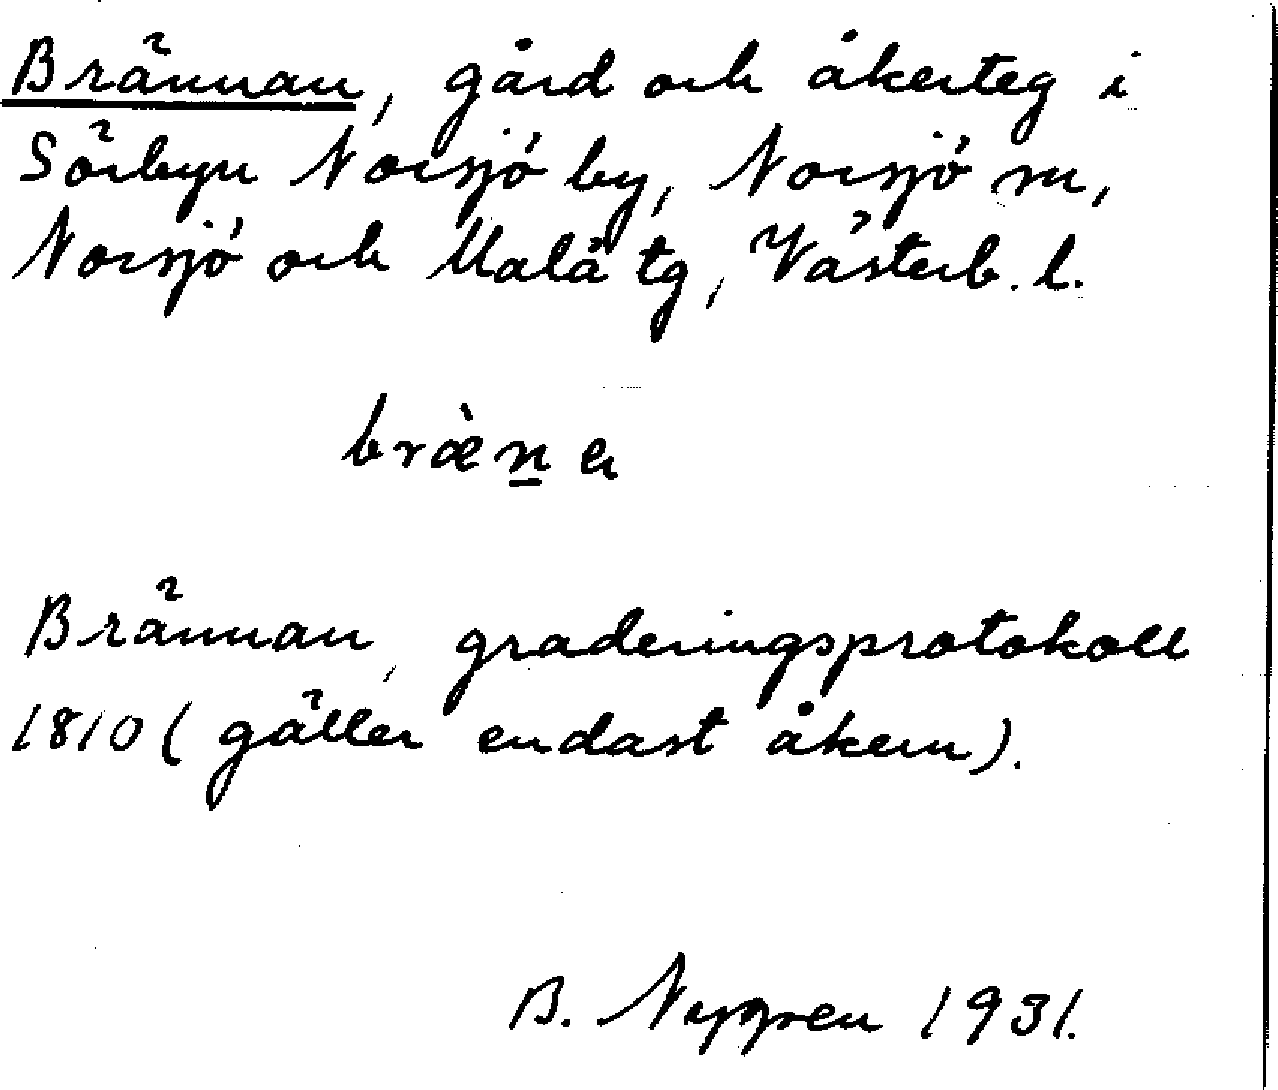 Brännan, gård och åkerteg i
Sörbyn Norsjö by, Norsjö sn,
Norsjö och Malå tg, Västerb. l.
bræ̀n̲a
Brännan, graderingsprotokoll
1810 (gäller endast åkern).
B. Nygren 1931.